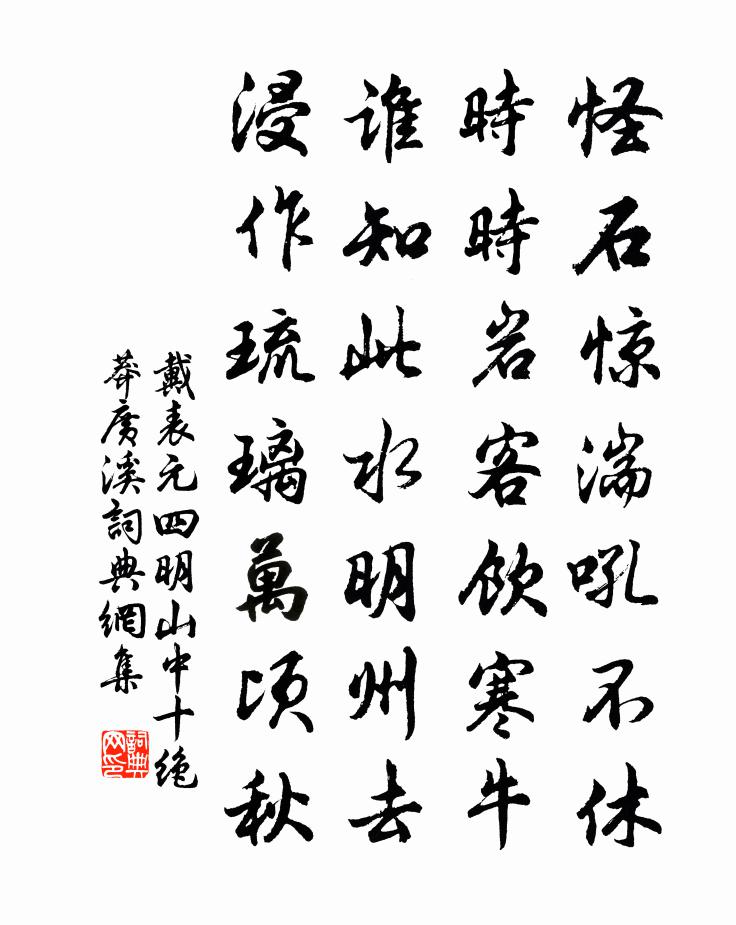 怪石惊湍吼不休
時時岩客飲寒牛
谁知此水明州去
浸作琉璃萬頃秋
戴表元四明山中十绝
莽廣溪詞典網集
詞典网印